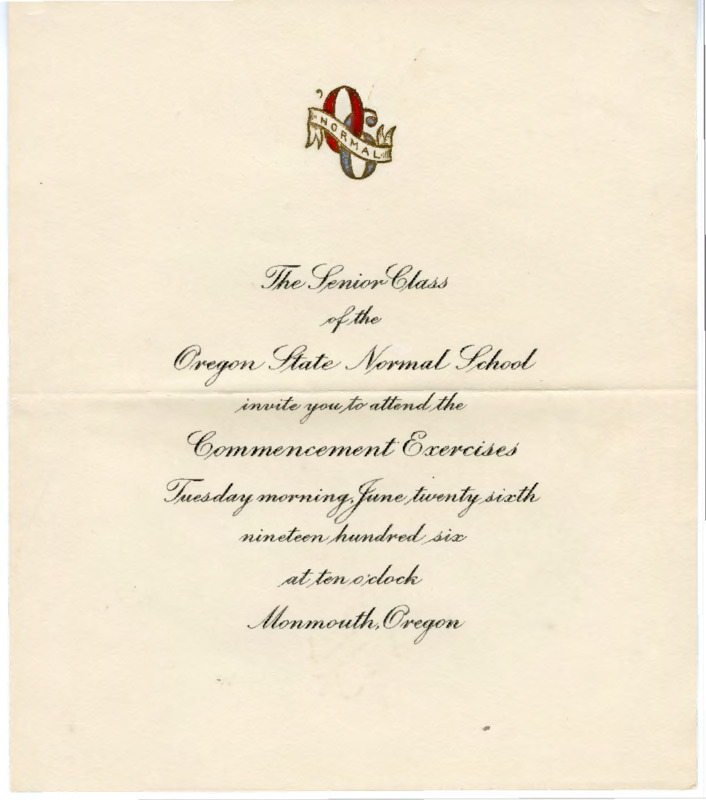 NORMAL
The Senior Class
of the
Oregon State Normal School
invite you to attend the
Commencement Exercises
Tuesday morning, June twenty sixth
nineteen hundred six
at ten o'clock
Monmouth, Oregon